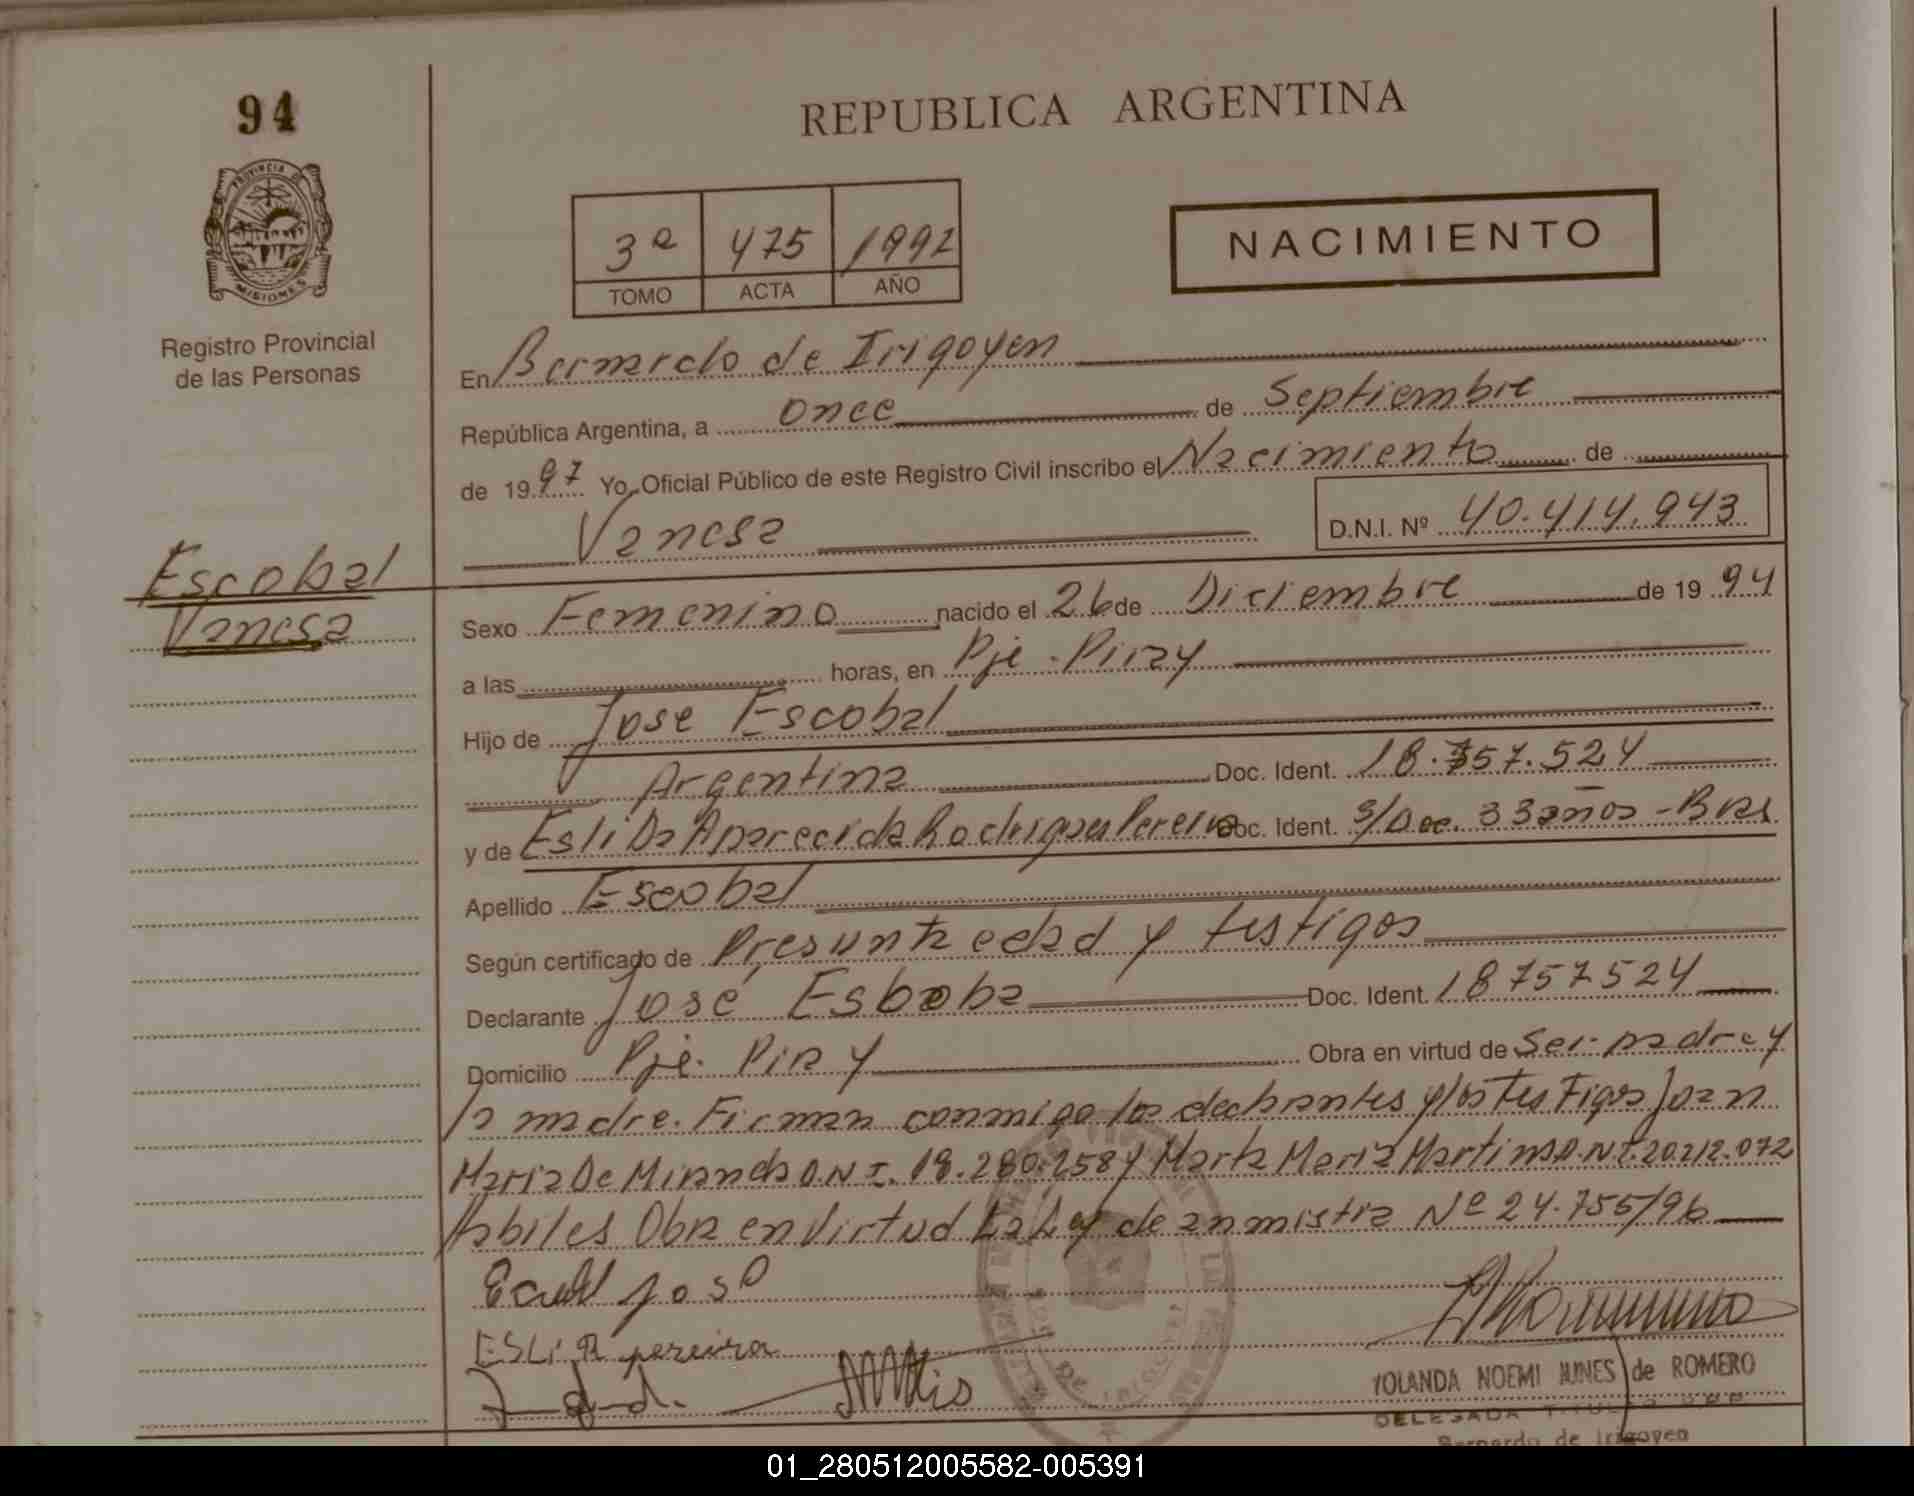 94
REPUBLICA ARGENTINA
PROVINCIA DE MISIONES
Registro Provincial
de las Personas
3ª 475 1997
TOMO ACTA AÑO
NACIMIENTO
En Bernardo de Irigoyen
República Argentina, a once de Septiembre
de 1997 Yo, Oficial Público de este Registro Civil inscribo el Nacimiento de
Vanesa D.N.I. Nº 40.414.943
Escobal
Vanesa
Sexo Femenino nacido el 26 de Diciembre de 1994
a las horas, en Pje. Piray
Hijo de Jose Escobal
Argentina Doc. Ident. 18.757.524
y de Esli Da Aparecida Rodrigues Pereira Doc. Ident. s/Doc. 33 años - Bras
Apellido Escobal
Según certificado de Presunta edad y testigos
Declarante José Esboba Doc. Ident. 18757524
Domicilio Pje. Piray Obra en virtud de Ser padre y
la madre. Firman conmigo los declarantes y los testigos Joan
Maria De Miranda D.N.I. 18.280.258 y Marta Maria Martins D.N.I. 20.212.072
Habiles Obra en Virtud La Ley de anmistia Nº 24.755/96
José
ESLi R pereira
YOLANDA NOEMI JUNES de ROMERO
DELEGADA TITULAR R.P.P.
Bernardo de Irigoyen
01_280512005582-005391